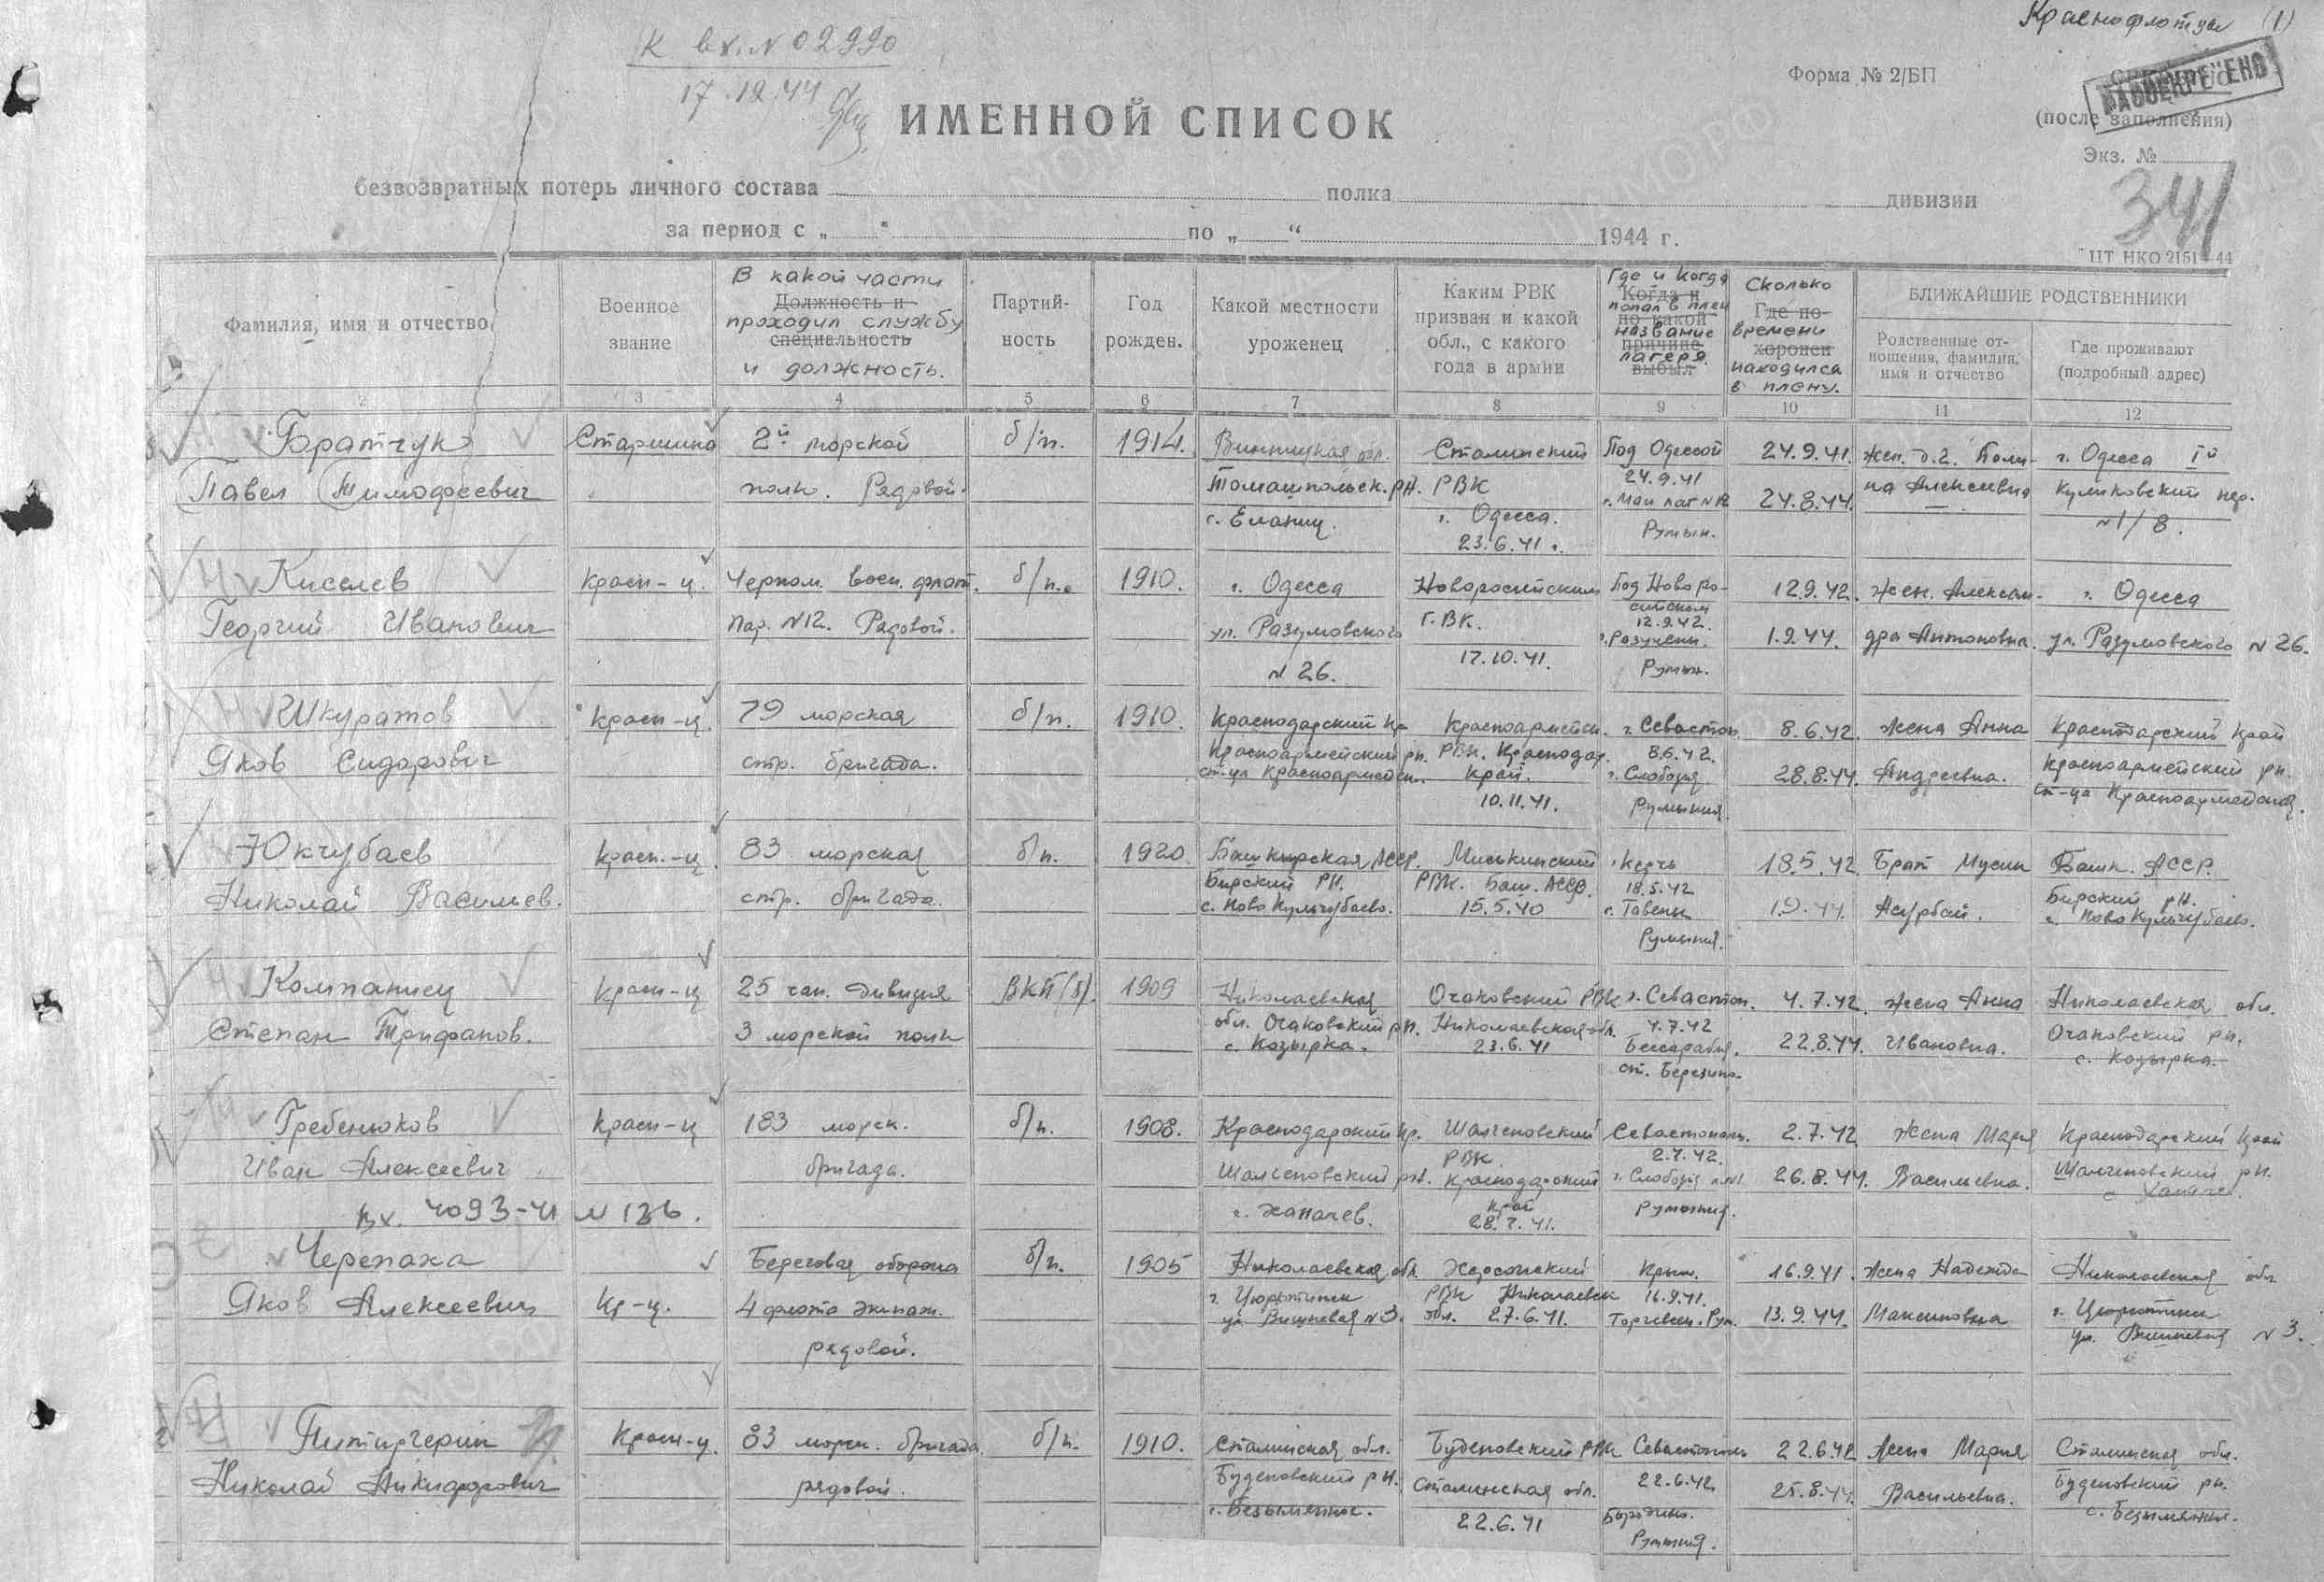 Краснофлотцы (1)
К вх. № 02990
17.12.44
Форма № 2/БП
РАССЕКРЕЧЕНО
(после заполнения)
ИМЕННОЙ СПИСОК
Экз. №
341
безвозвратных потерь личного состава полка дивизии
за период с „ “ по „ “ 1944 г.
ЦТ НКО 2151—44
Фамилия, имя и отчество
Военное звание
В какой части
Должность и
проходил службу
специальность
и должность.
Партий-
ность
Год
рожден.
Какой местности
уроженец
Каким РВК
призван и какой
обл., с какого
года в армии
Где и когда
Когда и
попал в плен
по какой
название
причине
лагеря
выбыл
Сколько
Где по-
времени
хоронен
находился
в плену.
БЛИЖАЙШИЕ РОДСТВЕННИКИ
Родственные от-
ношения, фамилия,
имя и отчество
Где проживают
(подробный адрес)
2 3 4 5 6 7 8 9 10 11 12
Братчук Старшина 2й морской б/п. 1914. Винницкая обл. Сталинский Под Одессой 24.9.41. жен. Поли- г. Одесса
Павел Тимофеевич полк. Рядовой. Томашпольск. рн. РВК 24.9.41 24.8.44. на Алексеевна Куликовский пер.
с. Еланец. г. Одесса. Румын. №1/8.
23.6.41 г.
Киселев Красн-ц. Черном. воен. флот. б/п. 1910. г. Одесса Новоросийским Под Новоро- 12.9.42. Жен. Алексан- г. Одесса
Георгий Иванович Пар. №12. Рядовой. ул. Разумовского Г.ВК. сийском 12.9.42. 1.9.44. дра Антоновна. ул. Разумовского №26.
№26. 17.10.41. Румын.
Шкуратов Красн-ц. 79 морская б/п. 1910. Краснодарский кр Красноармейск. г. Севастоп. 8.6.42. Жена Анна Краснодарский край
Яков Сидорович стр. бригада. Красноармейский рн. РВК. Краснодар. 8.6.42. 28.8.44. Андреевна. Красноармейский рн.
ст-ца Красноармейск. край. г. Слободзя ст-ца Красноармейская.
10.11.41. Румыния.
Юкчубаев Красн.-ц. 83 морская б/п. 1920. Башкирская АССР. Мишкинский г. Керчь 18.5.42. Брат Мусин Башк. АССР.
Николай Васильев. стр. бригада. Бирский РН. РВК. Баш. АССР. 18.5.42 1.9.44. Бирский рн.
с. Ново Кульчубаево. 15.5.40 с. Ново Кульчубаево.
Румыния.
Компаниец Красн-ц 25 чап. дивизия ВКП(б). 1909 Николаевская Очаковский РВК г. Севастоп. 4.7.42. Жена Анна Николаевская обл.
Степан Трифанов. 3 морской полк обл. Очаковский рн. Николаевская обл. 4.7.42 22.8.44. Ивановна. Очаковский рн.
с. Козырка. 23.6.41 Бессарабия. с. Козырка.
ст. Березино.
Гребенюков Красн-ц 183 морск. б/п. 1908. Краснодарский кр. Севастополь. 2.7.42. Жена Мария Краснодарский край
Иван Алексеевич бригада. РВК. 2.7.42. 26.8.44. Васильевна.
Краснодарский г. Слободзя
вх. 4093-41 №126. край Румыния.
28.7.41.
Черепаха Береговая оборона б/п. 1905 Николаевская обл. Херсонский Крым. 16.9.41. Жена Надежда Николаевская обл
Яков Алексеевич Кр-ц. 4 флота экипаж. г. Цюрюпинск РВК Николаевск 16.9.41. 13.9.44. Максимовна г. Цюрюпинск
рядовой. ул. Вишневая №3. обл. 27.6.41. ул. Вишневая №3.
Красн-ц. 83 морск. бригада б/п. 1910. Сталинская обл. Буденовский РВК Севастополь 22.6.42 Жена Мария Сталинская обл.
Николай Никифорович рядовой. Буденовский рн. Сталинская обл. 22.6.42 25.8.44. Васильевна. Буденовский рн.
с. Безыменное. 22.6.41 Румыния. с. Безыменное.